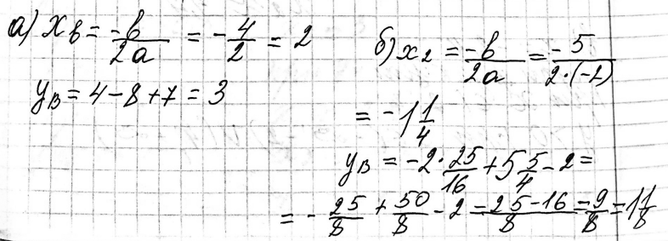 а) x_в = -b/2a = -4/2 = 2
y_в = 4-8+7 = 3
б) x_2 = -b/2a = -5/2·(-2)
= -1 1/4
y_в = -2·25/16 + 5 5/4 - 2 =
= -25/8 + 50/8 - 2 = 25-16/8 = 9/8 = 1 1/8